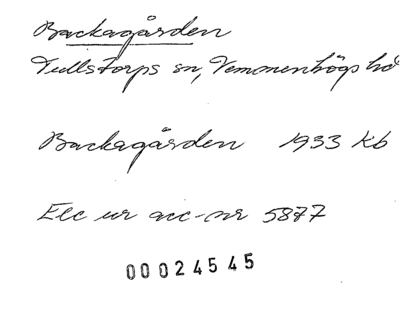 Backagården
Tullstorps sn, Vemmenhögs hd
Backagården 1933 Kb
Elc ur acc-nr 5877
00024545